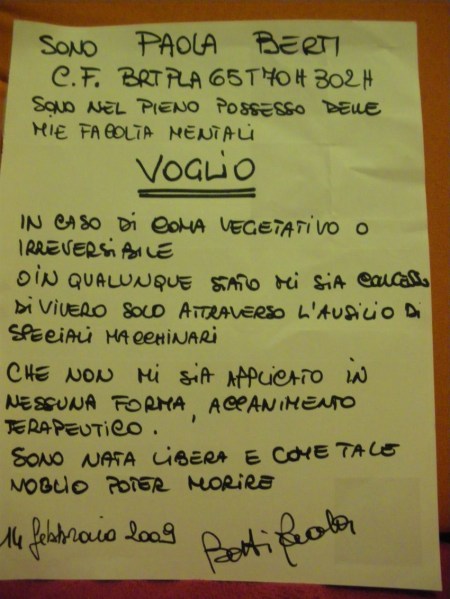 SONO PAOLA BERTI
C.F. BRTPLA65T70H302H
SONO NEL PIENO POSSESSO DELLE
MIE FACOLTA MENTALI
VOGLIO
IN CASO DI COMA VEGETATIVO O
IRREVERSIBILE
O IN QUALUNQUE STATO MI SIA CONCESSO
DI VIVERE SOLO ATTRAVERSO L'AUSILIO DI
SPECIALI MACCHINARI
CHE NON MI SIA APPLICATO IN
NESSUNA FORMA, ACCANIMENTO
TERAPEUTICO.
SONO NATA LIBERA E COME TALE
VOGLIO POTER MORIRE
14 febbraio 2009 Berti Paola